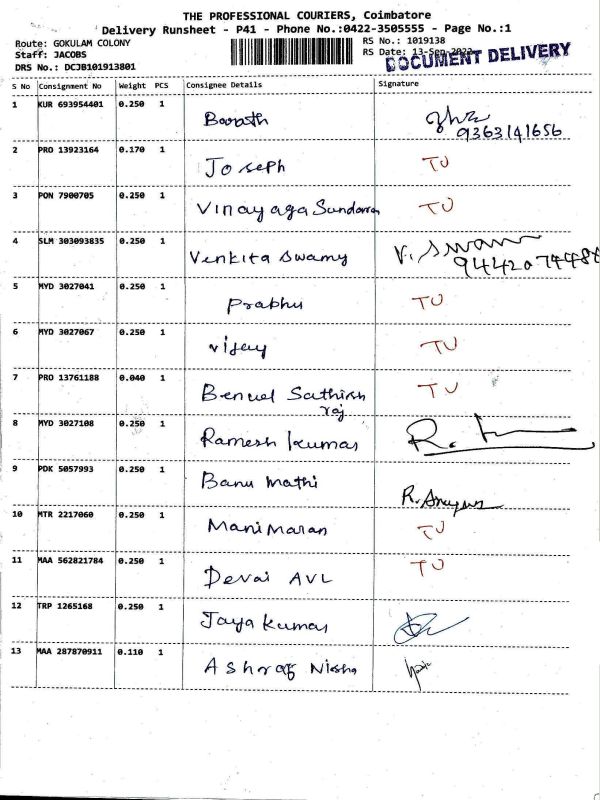 THE PROFESSIONAL COURIERS, Coimbatore
Delivery Runsheet - P41 - Phone No.:0422-3505555 - Page No.:1
Route: GOKULAM COLONY
Staff: JACOBS
DRS No.: DCJB101913801
RS No.: 1019138
RS Date: 13-Sep-2022
DOCUMENT DELIVERY
S No Consignment No Weight PCS Consignee Details Signature
1 KUR 693954401 0.250 1 Barath
9363141656
2 PRO 13923164 0.170 1 Joseph TU
3 PON 7900705 0.250 1 Vinayaga Sundaram TU
4 SLM 303093835 0.250 1 Venkita Swamy V. Swam
9442074486
5 MYD 3027041 0.250 1 Prabhu TU
6 MYD 3027067 0.250 1 Vijay TU
7 PRO 13761188 0.040 1 Benuel Sathish TU
raj
8 MYD 3027108 0.250 1 Ramesh kumar
9 PDK 5057993 0.250 1 Banu Mathi
10 MTR 2217060 0.250 1 Mani Maran TU
11 MAA 562821784 0.250 1 Devai AVL TU
12 TRP 1265168 0.250 1 Jaya kumar
13 MAA 287870911 0.110 1 Ashraf Nisha